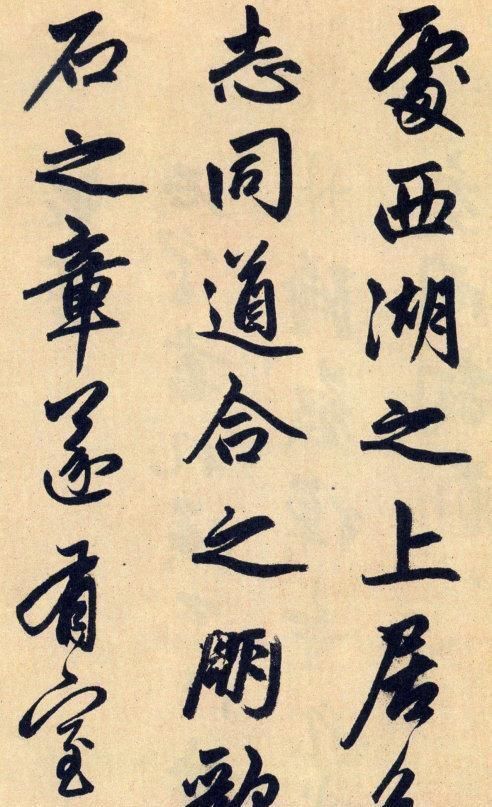 處西湖之上居
志同道合之朋歌
石之章遂有室